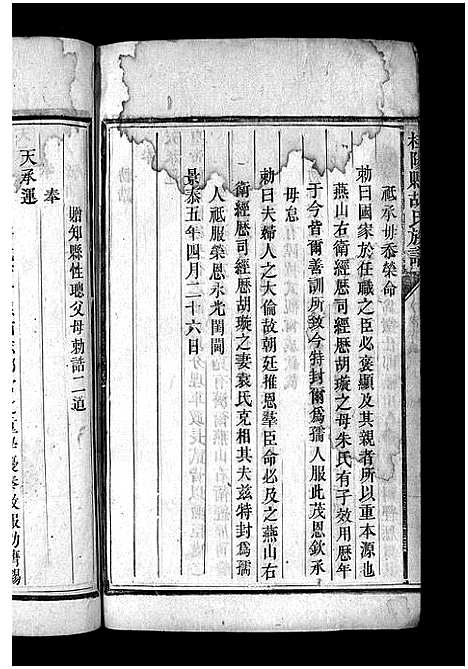 桂陽縣胡氏族譜
祗承毋忝榮命
勅曰國家於任職之臣必褒顯及其親者所以重本源也
燕山右衛經歷司經歷胡璇之母朱氏有子效用歷年
于今皆爾善訓所致今特封爾為孺人服此茂恩欽承
毋怠
勅曰夫婦人之大倫故朝廷推恩羣臣命必及之燕山右
衛經歷司經歷胡璇之妻袁氏克相其夫茲特封為孺
人祗服榮恩永光閨閫
景泰五年四月二十六日
贈知縣性聰父母勅誥二道
奉
天承運